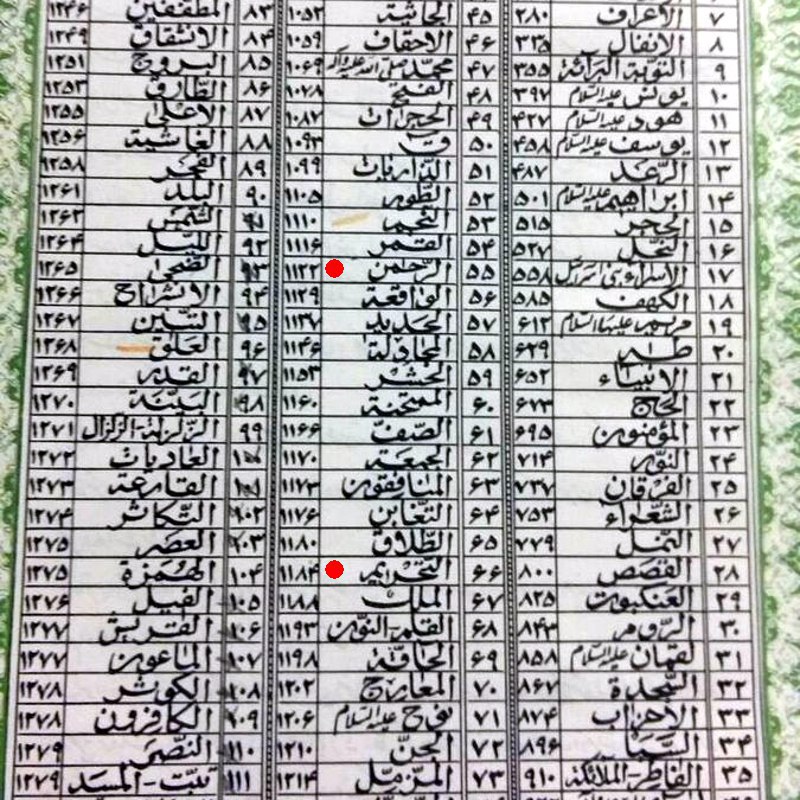 ٧ الأعراف ٢٨٠ ٤٥ الجاثية ١٠٥٢ ٨٣ المطففين ١٢٤٦
٨ الانفال ٣٣٥ ٤٦ الاحقاف ١٠٥٩ ٨٤ الانشقاق ١٢٤٩
٩ التوبة البرائة ٣٥٥ ٤٧ محمد صلى الله عليه وآله ١٠٦٩ ٨٥ البروج ١٢٥١
١٠ يونس عليه السلام ٣٩٧ ٤٨ الفتح ١٠٧٨ ٨٦ الطارق ١٢٥٣
١١ هود عليه السلام ٤٢٧ ٤٩ الحجرات ١٠٨٧ ٨٧ الاعلى ١٢٥٥
١٢ يوسف عليه السلام ٤٥٨ ٥٠ ق ١٠٩٣ ٨٨ الغاشية ١٢٥٦
١٣ الرعد ٤٨٧ ٥١ الذاريات ١٠٩٩ ٨٩ الفجر ١٢٥٨
١٤ ابراهيم عليه السلام ٥٠١ ٥٢ الطور ١١٠٥ ٩٠ البلد ١٢٦١
١٥ الحجر ٥١٥ ٥٣ النجم ١١١٠ ٩١ الشمس ١٢٦٣
١٦ النحل ٥٢٧ ٥٤ القمر ١١١٦ ٩٢ الليل ١٢٦٤
١٧ الاسراء وبنى اسرائيل ٥٥٨ ٥٥ الرحمن ١١٢٢ ٩٣ الضحى ١٢٦٥
١٨ الكهف ٥٨٥ ٥٦ الواقعة ١١٢٩ ٩٤ الانشراح ١٢٦٦
١٩ مريم عليها السلام ٦١٣ ٥٧ الحديد ١١٣٧ ٩٥ التين ١٢٦٧
٢٠ طه ٦٢٩ ٥٨ المجادلة ١١٤٦ ٩٦ العلق ١٢٦٨
٢١ الانبياء ٦٥٢ ٥٩ الحشر ١١٥٣ ٩٧ القدر ١٢٦٩
٢٢ الحج ٦٧٣ ٦٠ الممتحنة ١١٦٠ ٩٨ البينة ١٢٧٠
٢٣ المؤمنون ٦٩٥ ٦١ الصف ١١٦٦ ٩٩ الزلزلة-الزلزال ١٢٧١
٢٤ النور ٧١٤ ٦٢ الجمعة ١١٧٠ ١٠٠ العاديات ١٢٧٢
٢٥ الفرقان ٧٣٧ ٦٣ المنافقون ١١٧٣ ١٠١ القارعة ١٢٧٣
٢٦ الشعراء ٧٥٣ ٦٤ التغابن ١١٧٦ ١٠٢ التكاثر ١٢٧٤
٢٧ النمل ٧٧٩ ٦٥ الطلاق ١١٨٠ ١٠٣ العصر ١٢٧٥
٢٨ القصص ٨٠٠ ٦٦ التحريم ١١٨٤ ١٠٤ الهمزة ١٢٧٥
٢٩ العنكبوت ٨٢٥ ٦٧ الملك ١١٨٨ ١٠٥ الفيل ١٢٧٦
٣٠ الروم ٨٤٣ ٦٨ القلم-النون ١١٩٣ ١٠٦ القريش ١٢٧٧
٣١ لقمان عليه السلام ٨٥٨ ٦٩ الحاقة ١١٩٨ ١٠٧ الماعون ١٢٧٧
٣٢ السجدة ٨٦٧ ٧٠ المعارج ١٢٠٢ ١٠٨ الكوثر ١٢٧٨
٣٣ الاحزاب ٨٧٤ ٧١ نوح عليه السلام ١٢٠٦ ١٠٩ الكافرون ١٢٧٨
٣٤ السبا ٨٩٦ ٧٢ الجن ١٢١٠ ١١٠ النصر ١٢٧٩
٣٥ الفاطر-الملائكة ٩١٠ ٧٣ المزمل ١٢١٤ ١١١ تبت-المسد ١٢٧٩